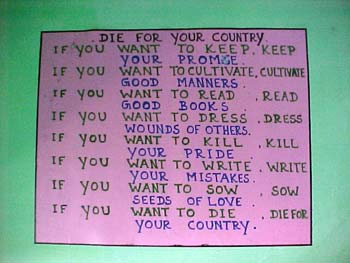 DIE FOR YOUR COUNTRY.
IF YOU WANT TO KEEP. KEEP
YOUR PROMSE.
IF YOU WANT TO CULTIVATE, CULTIVATE
GOOD MANNERS.
IF YOU WANT TO READ , READ
GOOD BOOKS
IF YOU WANT TO DRESS , DRESS
WOUNDS OF OTHERS.
IF YOU WANT TO KILL , KILL
YOUR PRIDE
IF YOU WANT TO WRITE , WRITE
YOUR MISTAKES.
IF YOU WANT TO SOW , SOW
SEEDS OF LOVE .
IF YOU WANT TO DIE , DIE FOR
YOUR COUNTRY.